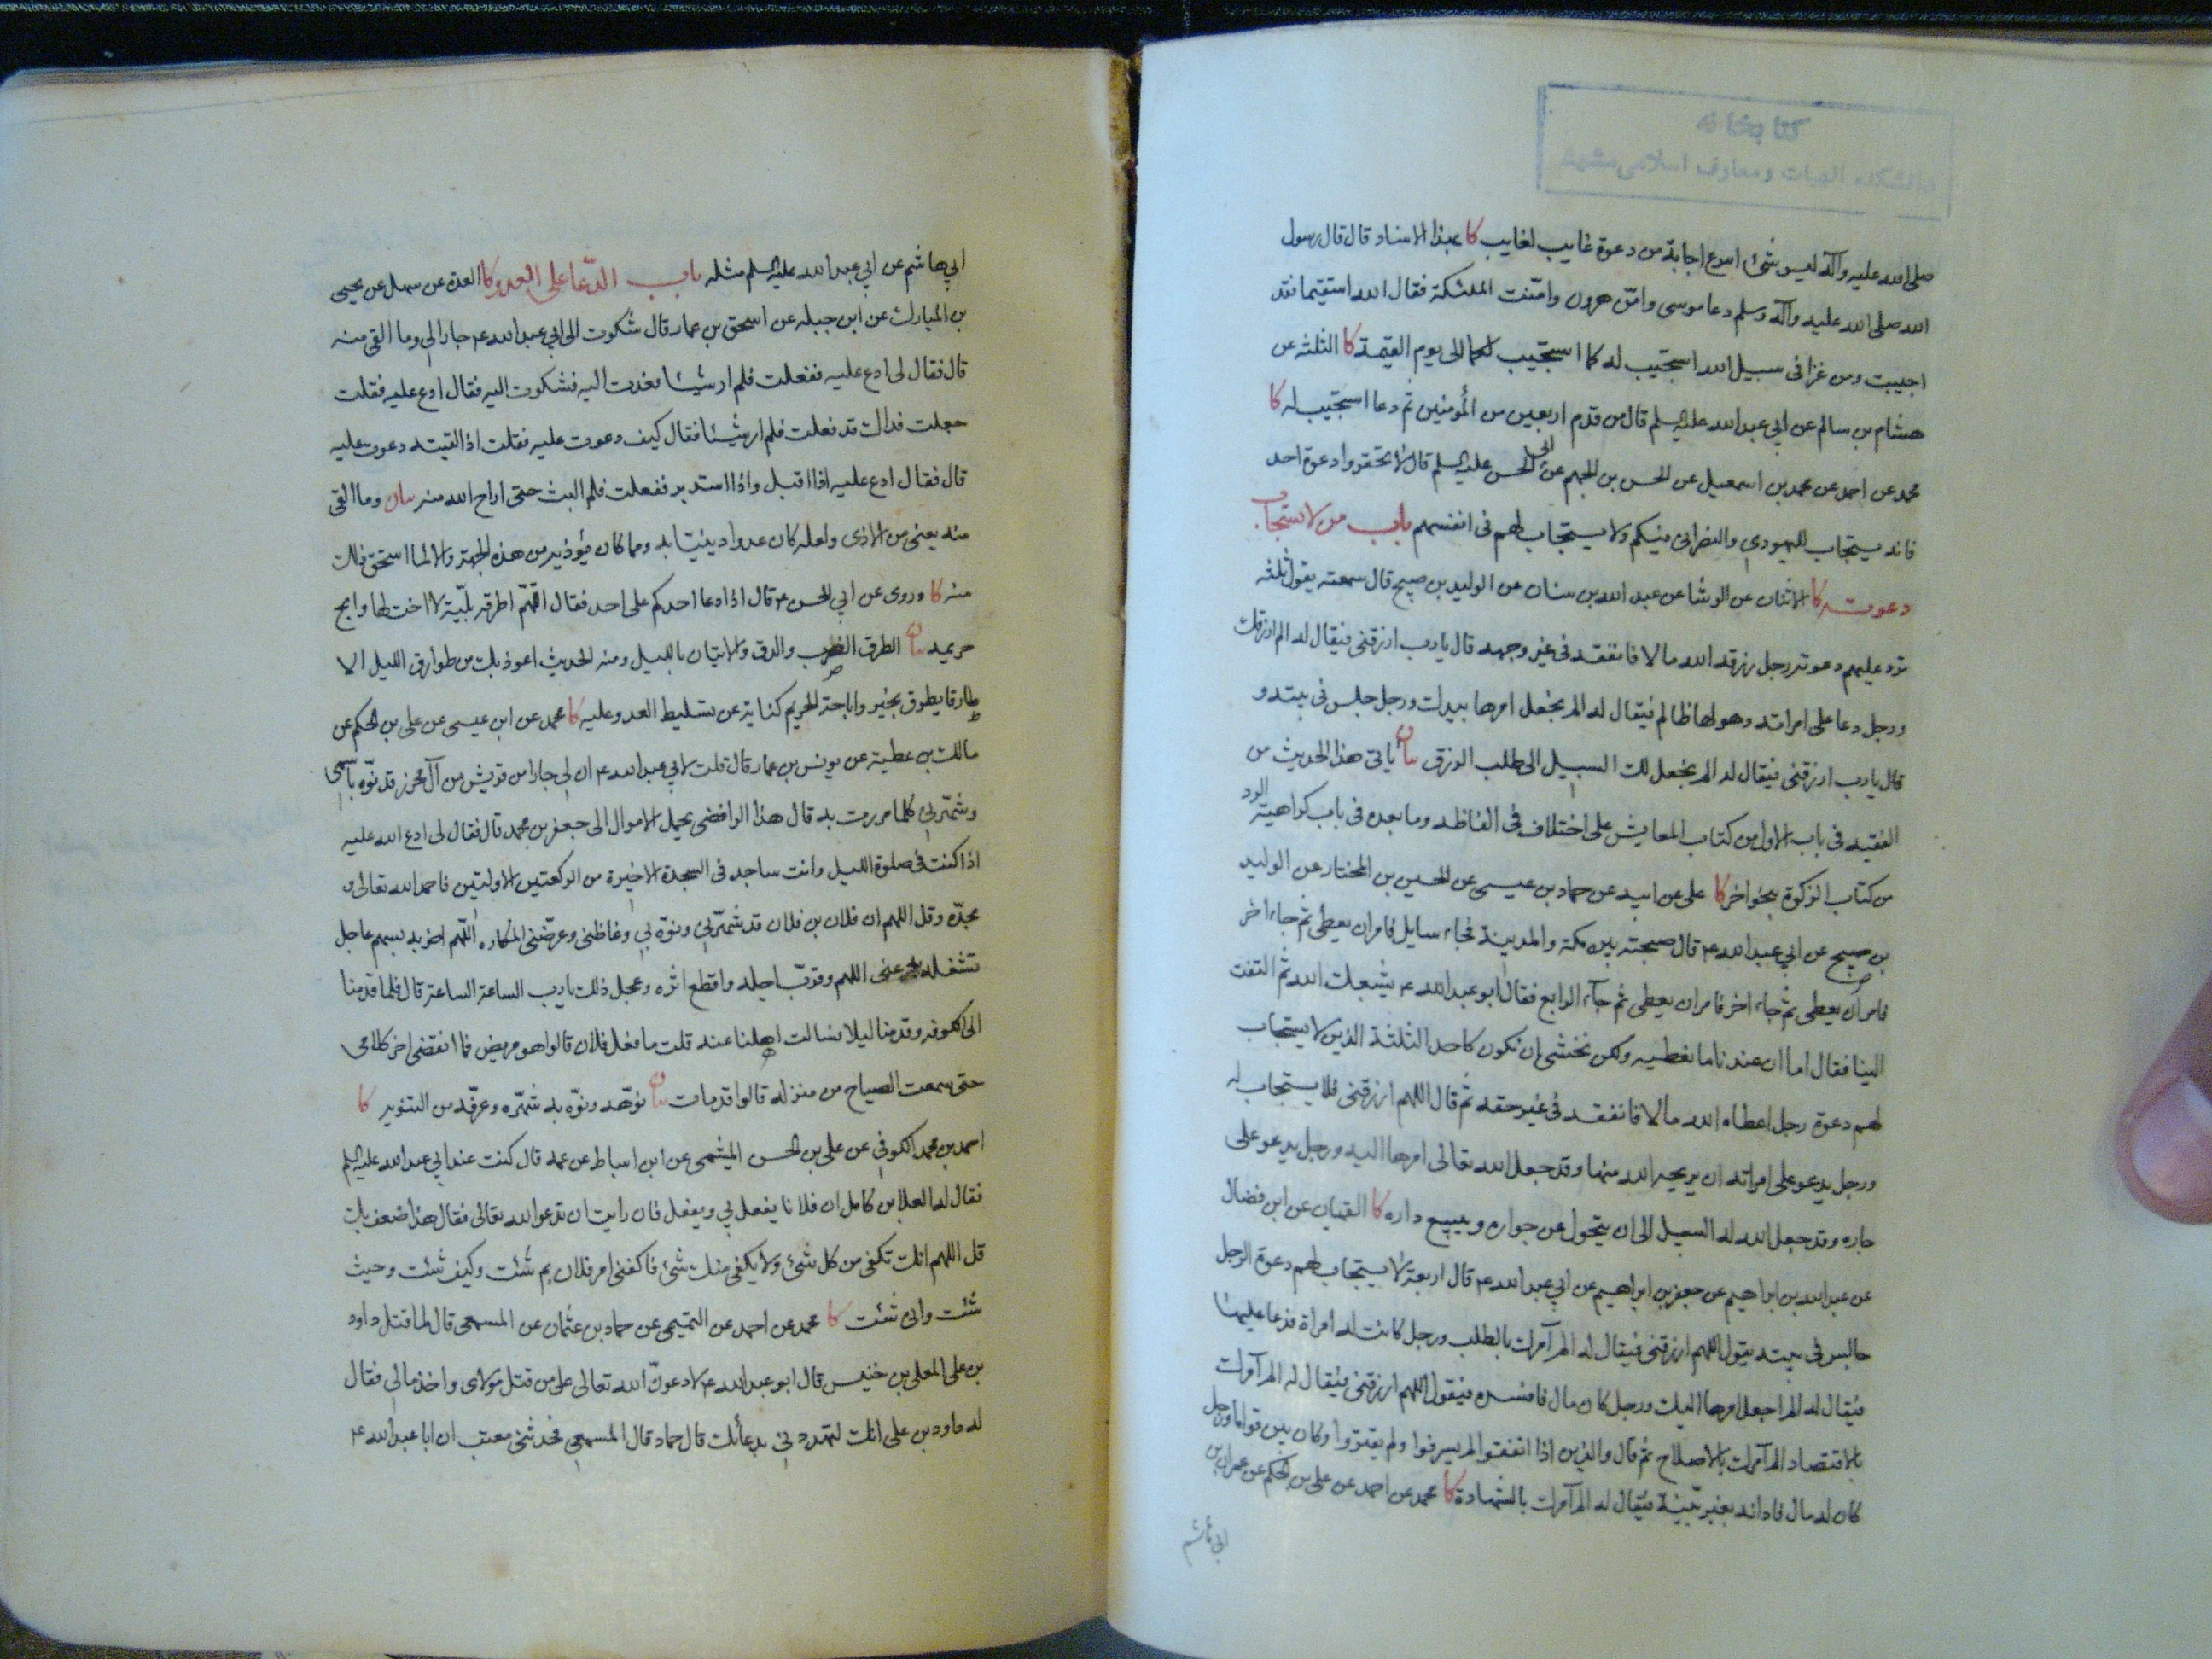 كتابخانه
دانشكده الهيات ومعارف اسلامى مشهد
صلى الله عليه وآله ليس شئ اسرع اجابة من دعوة غايب لغايب كا بهذا الاسناد قال قال رسول
الله صلى الله عليه وآله وسلم دعا موسى وامّن هرون وامّنت الملئكة فقال الله استقيما فقد
اجيبت ومن غزا فى سبيل الله استجيب له كما استجيب لكما الى يوم القيمة كا الثلثة عن
هشام بن سالم عن ابي عبد الله عليه السلم قال من قدم اربعين من المؤمنين ثم دعا استجيب له كا
محمد عن احمد عن محمد بن اسمعيل عن الحسن بن الجهم عن ابى الحسن عليه السلم قال لا تحقروا دعوة احد
فانه يستجاب لليهودي والنصرانى فيكم ولا يستجاب لهم فى انفسهم باب من لا يستجاب
دعوته كا الاثنان عن الوشا عن عبد الله بن سنان عن الوليد بن صبيح قال سمعته يقول ثلثة
ترد عليهم دعوتهم رجل رزقه الله مالا فانفقه فى غير وجهه قال يا رب ارزقنى فيقال له الم ارزقك
ورجل دعا على امراته وهو لها ظالم فيقال له الم يجعل امرها بيدك ورجل جلس فى بيته و
قال يا رب ارزقنى فيقال له الم يجعل لك السبيل الى طلب الرزق بيان ياتى هذا الحديث من
الفقيه فى باب الاول من كتاب المعايش على اختلاف فى الفاظه وما بعده فى باب كراهية الرد
من كتاب الزكوة بنحو اخر كا على عن ابيه عن حماد بن عيسى عن الحسين بن المختار عن الوليد
بن صبيح عن ابي عبد الله ع قال صحبته بين مكة والمدينة فجاء سايل فامر ان يعطى ثم جاء اخر
فامر ان يعطى ثم جاء اخر فامر ان يعطى ثم جآء الرابع فقال ابو عبد الله ع يشبعك الله ثم التفت
الينا فقال اما ان عندنا ما نعطيه ولكن نخشى ان نكون كاحد الثلثة الذين لا يستجاب
لهم دعوة رجل اعطاه الله مالا فانفقه فى غير حقه ثم قال اللهم ارزقنى فلا يستجاب له
ورجل يدعو على امراته ان يريحه الله منها وقد جعل الله تعالى امرها اليه ورجل يدعو على
جاره وقد جعل الله له السبيل الى ان يتحول عن جواره ويبيع داره كا القميان عن ابن فضال
عن عبد الله بن ابراهيم عن جعفر بن ابراهيم عن ابي عبد الله ع قال اربعة لا يستجاب لهم دعوة الرجل
جالس فى بيته يقول اللهم ارزقنى فيقال له الم آمرك بالطلب ورجل كانت له امراة فدعا عليها
فيقال له الم اجعل امرها اليك ورجل كان مال فافسده فيقول اللهم ارزقنى فيقال له الم آمرك
بالاقتصاد الم آمرك بالاصلاح ثم قال والذين اذا انفقوا لم يسرفوا ولم يقتروا وكان بين قواما ورجل
كان له مال فادانه بغير بيّنة فيقال له الم آمرك بالشهادة كا محمد عن احمد عن على بن الحكم عن عمران بن
ابي هاشم
ابي هاشم عن ابي عبد الله عليه السلم مثله باب الدّعا على العدو كا العدة عن سهل عن يحيى
بن المبارك عن ابن جبله عن اسحق بن عمار قال شكوت الى ابي عبد الله ع جارا لى وما القى منه
قال فقال لى ادع عليه ففعلت فلم ار شيئا فعدت اليه فشكوت اليه فقال ادع عليه فقلت
جعلت فداك قد فعلت فلم ار شيئا فقال كيف دعوت عليه فقلت اذا لقيته دعوت عليه
قال فقال ادع عليه اذا اقبل واذا استدبر ففعلت فلم البث حتى اراح الله منه بيان وما القى
منه يعنى من الاذى ولعله كان عدوا دينيا به ومما كان يؤذيه من هذه الجهة والا لما استحق ذلك
منه كا وروى عن ابي الحسن ع قال اذا دعا احدكم على احد فقال اللّهمّ اطرقه ببليّة لا اخت لها وابح
حريمه بيان الطرق الضرب والدق والاتيان بالليل ومنه الحديث اعوذ بك من طوارق الليل الا
طارقا يطرق بخير واباحة الحريم كناية عن تسليط العدو عليه كا محمد عن ابن عيسى عن على بن الحكم عن
مالك بن عطية عن يونس بن عمار قال قلت لابي عبد الله ع ان لي جارا من قريش من آل محرز قد نوّه باسمى
وشهّرني كلما مررت به قال هذا الرافضى يحمل الاموال الى جعفر بن محمد قال فقال لى ادع الله عليه
اذا كنت فى صلوة الليل وانت ساجد فى السجدة الاخيرة من الركعتين الاوليين فاحمد الله تعالى و
مجدّه وقل اللهم ان فلان بن فلان قد شهّرني ونوّه بي وغاظنى وعرّضنى المكاره اللّهم اضربه بسهم عاجل
تشغله عنى اللهم وقرّب اجله واقطع اثره وعجل ذلك يا رب الساعة الساعة قال فلما قدمنا
الى الكوفه وقدمنا ليلا فسالت اهلنا عنه قلت ما فعل فلان قالوا هو مريض فما انقضى اخر كلامى
حتى سمعت الصياح من منزله قالوا قد مات بيان نوّهه ونوّه به شهّره وعرّفه من التنويه كا
احمد بن محمد الكوفي عن على بن الحسن الميثمى عن ابن اسباط عن عمه قال كنت عند ابي عبد الله عليه السلم
فقال له العلا بن كامل ان فلانا يفعل بي ويفعل فان رايت ان تدعو الله تعالى فقال هذا ضعف بك
قل اللهم انك تكفى من كل شئ ولا يكفى منك شئ فاكفنى امر فلان بم شئت وكيف شئت وحيث
شئت وانى شئت كا محمد عن احمد عن التميمى عن حماد بن عثمان عن المسمعى قال لما قتل داود
بن على المعلى بن خنيس قال ابو عبد الله ع لادعونّ الله تعالى على من قتل مولاى واخذ مالي فقال
له داود بن على انك لتهددني بدعائك قال حماد قال المسمعى فحدثنى معتب ان ابا عبد الله ع